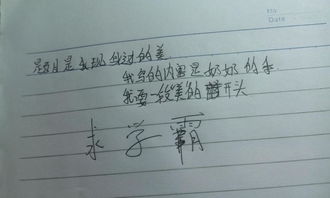 No
Date
题目是发现身边的美
我写的内容是奶奶的手
我要一段美的开头
求学霸